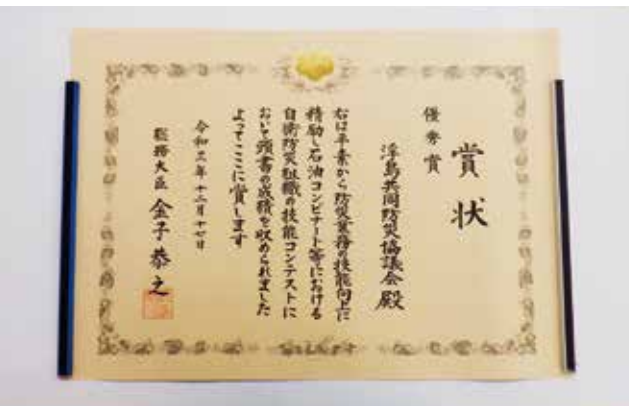 賞状
優秀賞
浮島共同防災協議会殿
右は平素から防災業務の技能向上に
精励し石油コンビナート等における
自衛防災組織の技能コンテストに
おいて頭書の成績を収められました
よってここに賞します
令和三年十二月十七日
総務大臣 金子恭之